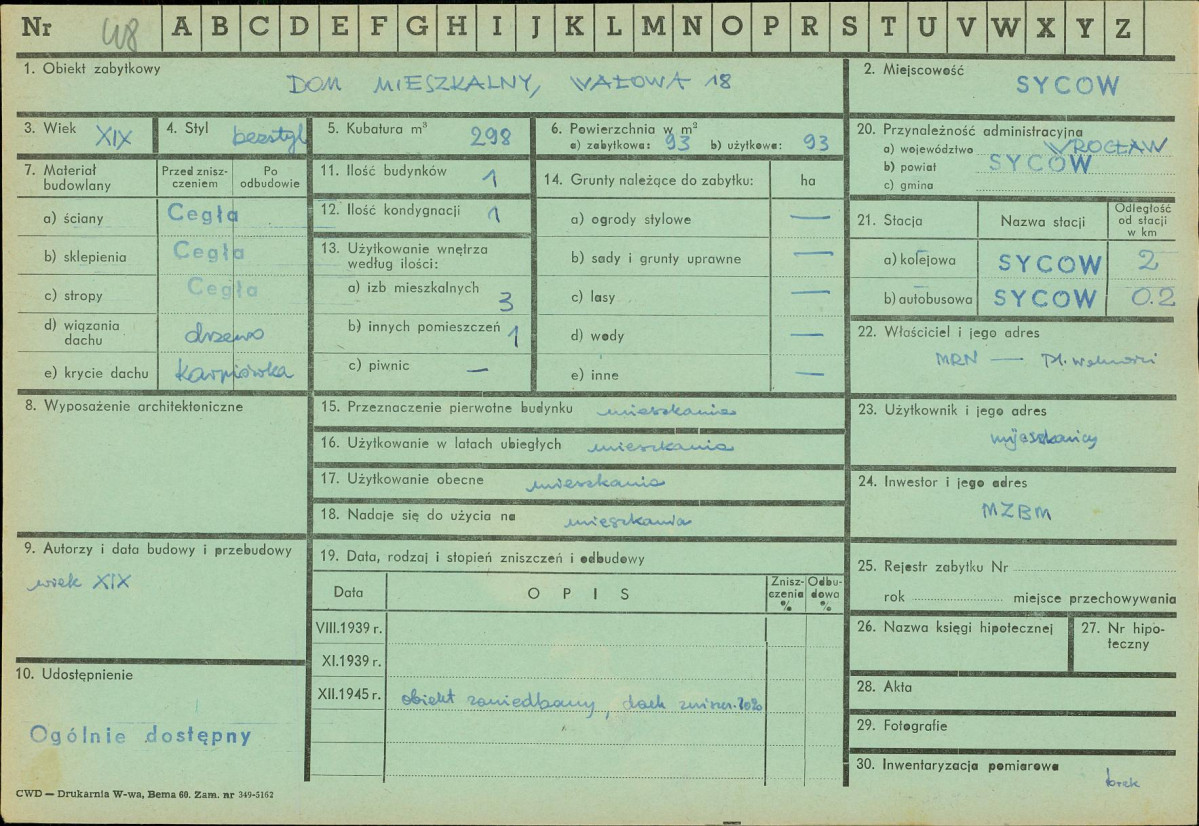 Nr 48 A B C D E F G H I J K L M N O P R S T U V W X Y Z
1. Obiekt zabytkowy
DOM MIESZKALNY, WAŁOWA 18
2. Miejscowość
SYCOW
3. Wiek XIX
4. Styl bezstyl
5. Kubatura m³ 298
6. Powierzchnia w m²
a) zabytkowa: 93 b) użytkowa: 93
20. Przynależność administracyjna
a) województwo WROCŁAW
b) powiat SYCOW
c) gmina
7. Materiał budowlany
Przed zniszczeniem
Po odbudowie
a) ściany Cegła
b) sklepienia Cegła
c) stropy Cegła
d) wiązania dachu drzewo
e) krycie dachu Karpiówka
11. Ilość budynków 1
12. Ilość kondygnacji 1
13. Użytkowanie wnętrza według ilości:
a) izb mieszkalnych 3
b) innych pomieszczeń 1
c) piwnic —
14. Grunty należące do zabytku: ha
a) ogrody stylowe —
b) sady i grunty uprawne —
c) lasy —
d) wody —
e) inne —
21. Stacja
Nazwa stacji
Odległość od stacji w km
a) kolejowa SYCOW 2
b) autobusowa SYCOW 0.2
22. Właściciel i jego adres
MRN — Pl. Wolności
8. Wyposażenie architektoniczne
15. Przeznaczenie pierwotne budynku mieszkania
16. Użytkowanie w latach ubiegłych mieszkania
17. Użytkowanie obecne mieszkania
18. Nadaje się do użycia na mieszkania
23. Użytkownik i jego adres
mieszkańcy
24. Inwestor i jego adres
MZBM
9. Autorzy i data budowy i przebudowy
wiek XIX
19. Data, rodzaj i stopień zniszczeń i odbudowy
Data
OPIS
Zniszczenia %
Odbudowa %
VIII.1939 r.
XI.1939 r.
XII.1945 r. obiekt zaniedbany, dach zniszcz. 70%
25. Rejestr zabytku Nr
rok miejsce przechowywania
26. Nazwa księgi hipotecznej
27. Nr hipoteczny
10. Udostępnienie
Ogólnie dostępny
28. Akta
29. Fotografie
30. Inwentaryzacja pomiarowa
brak
CWD — Drukarnia W-wa, Bema 60. Zam. nr 349-5162